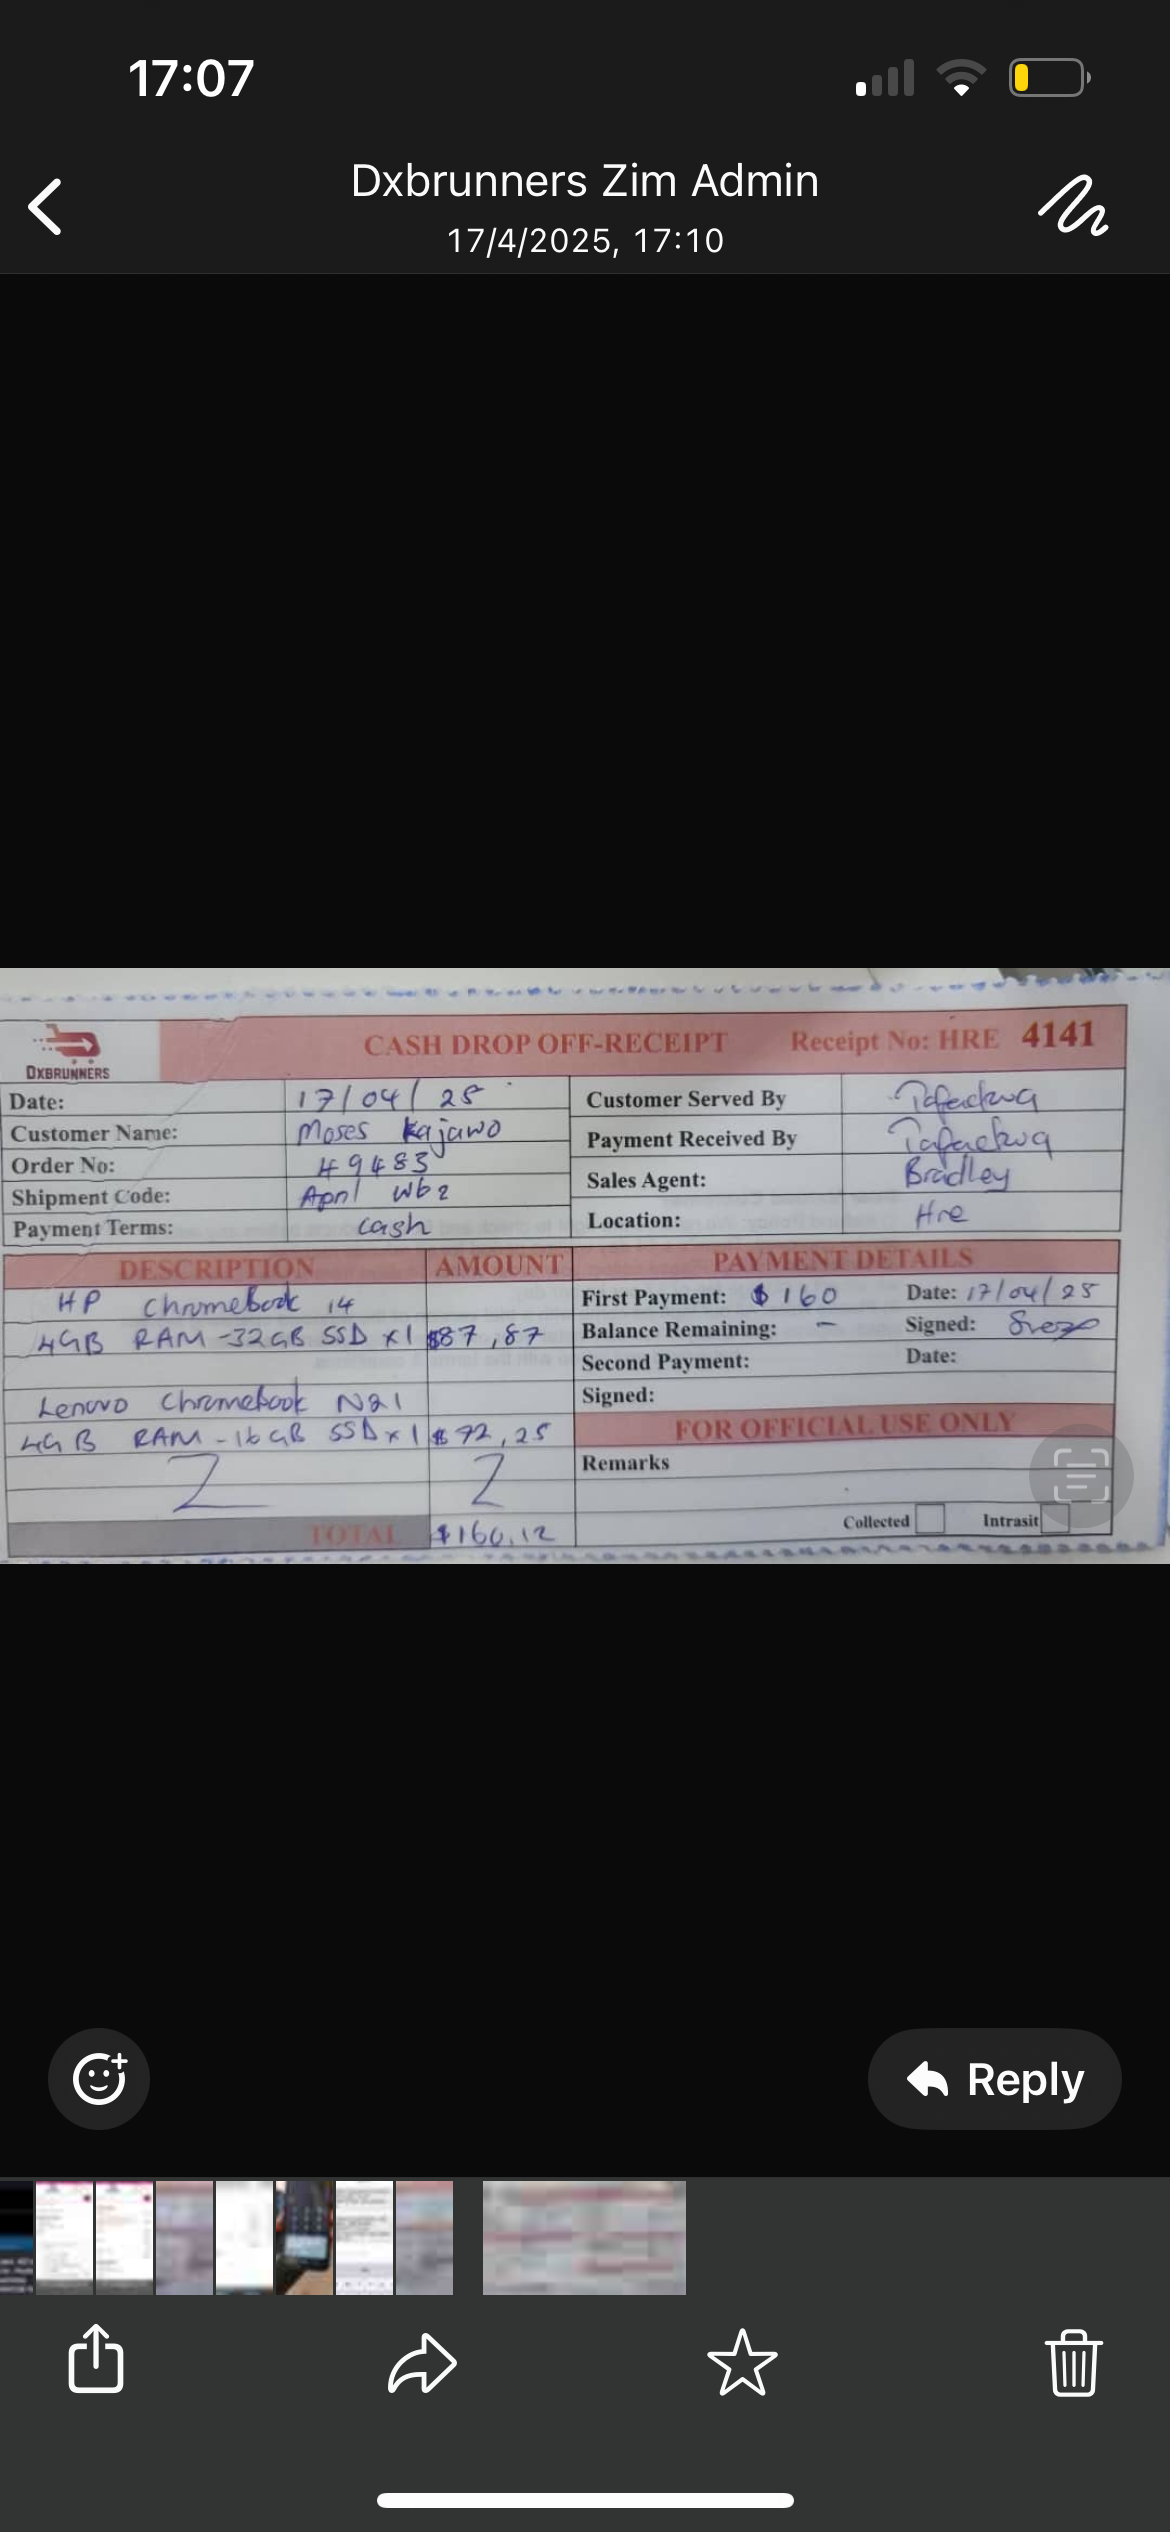 17:07
Dxbrunners Zim Admin
17/4/2025, 17:10
DXBRUNNERS
CASH DROP OFF-RECEIPT Receipt No: HRE 4141
Date: 17/04/25
Customer Name: Moses Kajawo
Order No: 49483
Shipment Code: April Wb2
Payment Terms: cash
Customer Served By
Payment Received By
Sales Agent: Bradley
Location: Hre
DESCRIPTION AMOUNT
HP Chromebook 14
4GB RAM - 32GB SSD x1 $87,87
Lenovo Chromebook N21
4GB RAM - 16GB SSD x1 $72,25
TOTAL $160.12
PAYMENT DETAILS
First Payment: $160 Date: 17/04/25
Balance Remaining: - Signed:
Second Payment: Date:
Signed:
FOR OFFICIAL USE ONLY
Remarks
Collected Intrasit
Reply